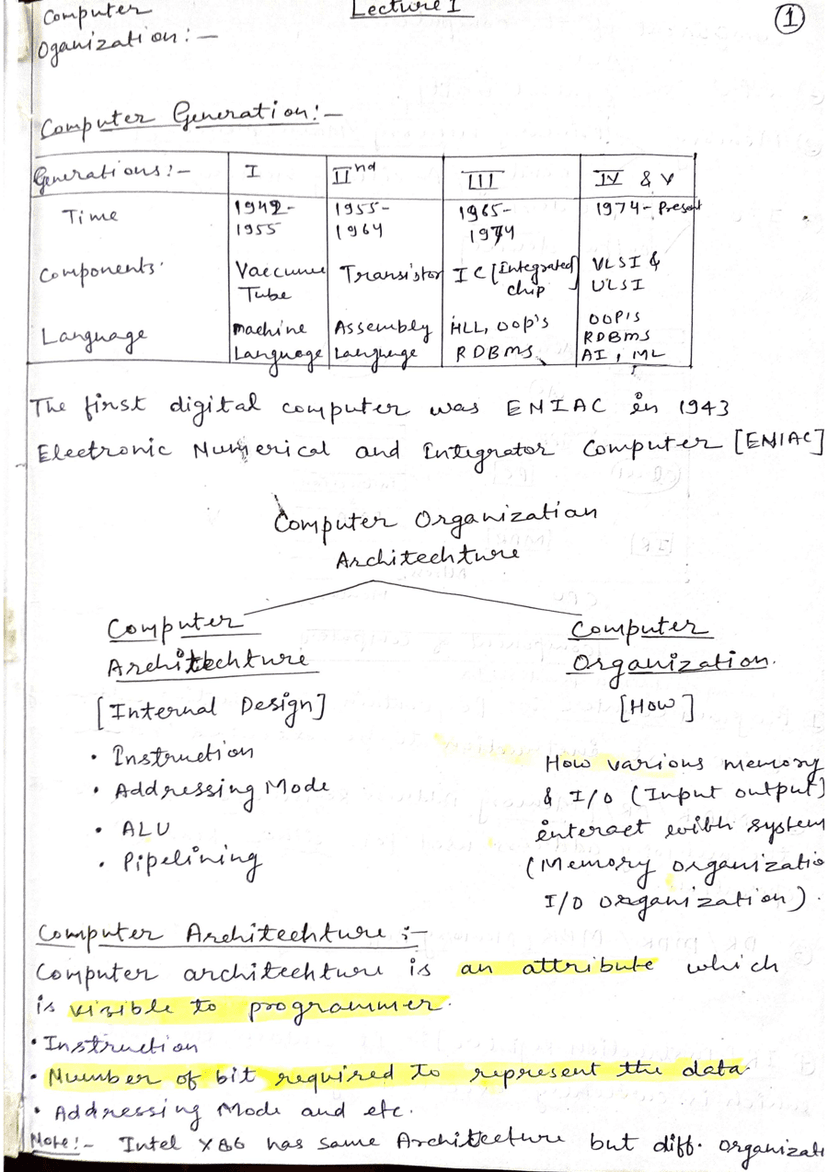 Computer
Lecture 1
1
Oganization:-
Computer Generation:-
Generations:- I IInd III IV & V
Time 1942-1955 1955-1964 1965-1974 1974-Present
Components. Vaccume Tube Transistor IC [Integrated chip] VLSI & ULSI
Language Machine Language Assembly Language HLL, OOP's RDBMS OOP'S RDBMS AI, ML
The first digital computer was ENIAC in 1943
Electronic Numerical and Integrator Computer [ENIAC]
Computer Organization
Architechture
Computer
Architechture
[Internal Design]
• Instruction
• Addressing Mode
• ALU
• Pipelining
Computer
Organization.
[How]
How various memory
& I/O (Input output)
interact with system
(Memory organizatio
I/O organization).
Computer Architechture :-
Computer architechture is an attribute which
is visible to programmer.
• Instruction
• Number of bit required to represent the data.
• Addressing Mode and etc.
Note:- Intel X86 has same Architecture but diff. organizati